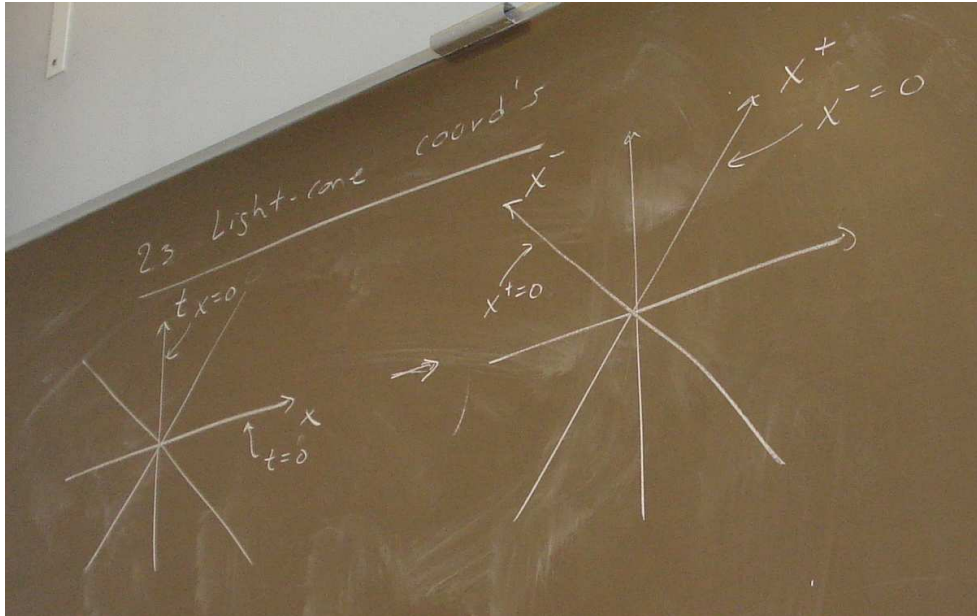 23 Light-cone coord's
t
x=0
x
t=0
x⁻
x⁺=0
x⁺
x⁻=0